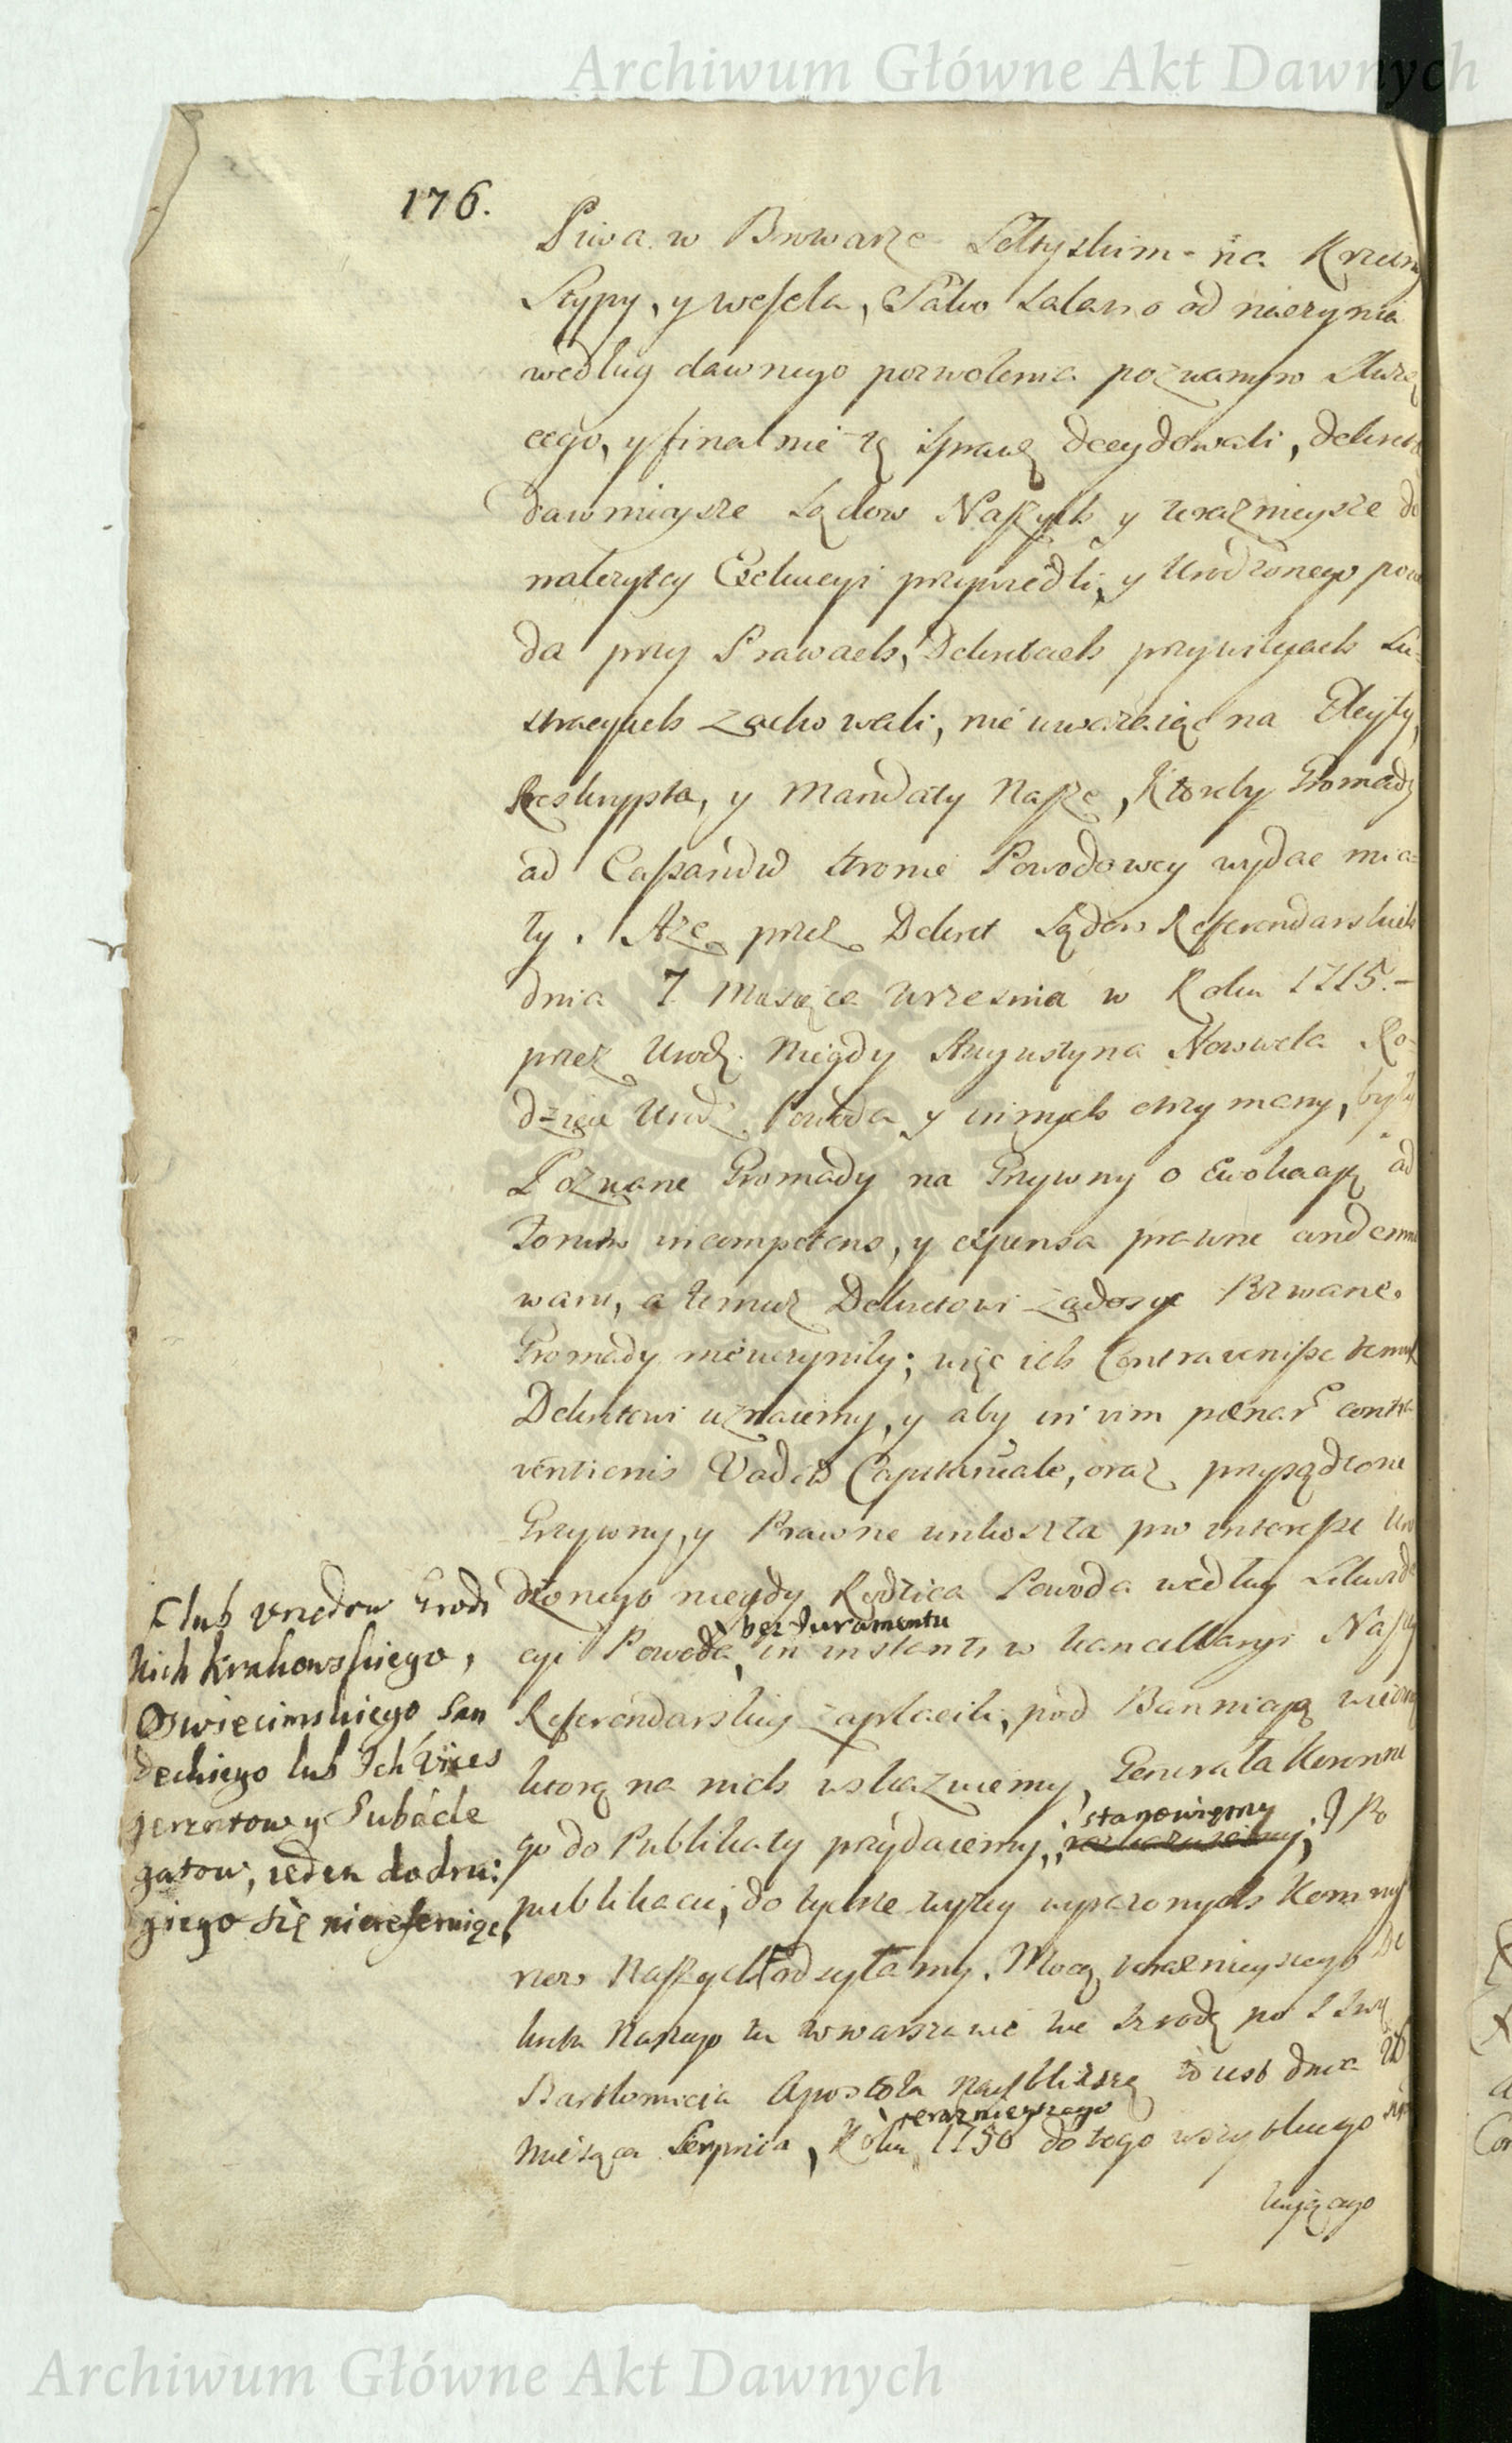 Archiwum Główne Akt Dawnych
176.
Piwa w Browarze Sołtyskim na Krzciny
Stypy, y wesela, Salvo Salario od naczynia
według dawnego pozwolenia pozwanym służą
cego, y finalnie tę sprawę decydowali, dekreta
dawnieysze Sądow Naszych y teraznieysze do
należytey Exekucyi przywiedli, y Urodzonego powo
da przy Prawach, Dekretach przywileiach Lu-
stracyach zachowali, nie uważaiąc na Glejty,
Reskrypta, y Mandaty Nasze, Ktoreby Gromady
ad Cassandum stronie Powodowey wydac mia-
ły. Aże przez Dekret Sądow Referendarskich
dnia 7 Miesiąca Wrzesnia w Roku 1715.-
przez Urodz. niegdy Augustyna Ro-
dzica Urodz. Powoda y innych otrzymany, były
Pozwane Gromady na Grzywny o Ewokacyą ad
Forum incompetens, y expensa prawne condemno
wani, a temuz Dekretowi zadosyc Pozwane
Gromady nieuczyniły; więc ich Contravenisse temuż
Dekretowi uznaiemy, y aby in vim pœnar contra
ventionis Vadium Capitaneale, oraz przysądzone
Grzywny, y Prawne unkoszta pro interesse Uro
dzonego niegdy Rodzica Powoda według Likwida
cyi Powoda, bez Juramentu in instanti w kancellaryi Naszey
Referendarskiey zapłacili, pod Bannicyą wieczną
ktorą na nich wskazuiemy, Generała Koronne
go do Publikaty przydaiemy, stanowiemy; A Po
publikacie, do tychże wyżey wyrazonych Kommis
rzow Naszych odsyłamy. Mocą teraznieyszego De
kretu Naszego tu w Warszawie we Srzodę po Swię
Bartłomieia Apostoła naybliższą to iest dnia 26
Miesiąca Sierpnia, Roku teraznieyszego 1750 do tego wszystkiego
kuiącego
lub Urzędow Grodz
kich Krakowskiego,
Oswiecimskiego San
deckiego lub Ich Vices
gerentow y Subdele
gatow, ieden do dru:
giego się niereferuiąc
Archiwum Główne Akt Dawnych